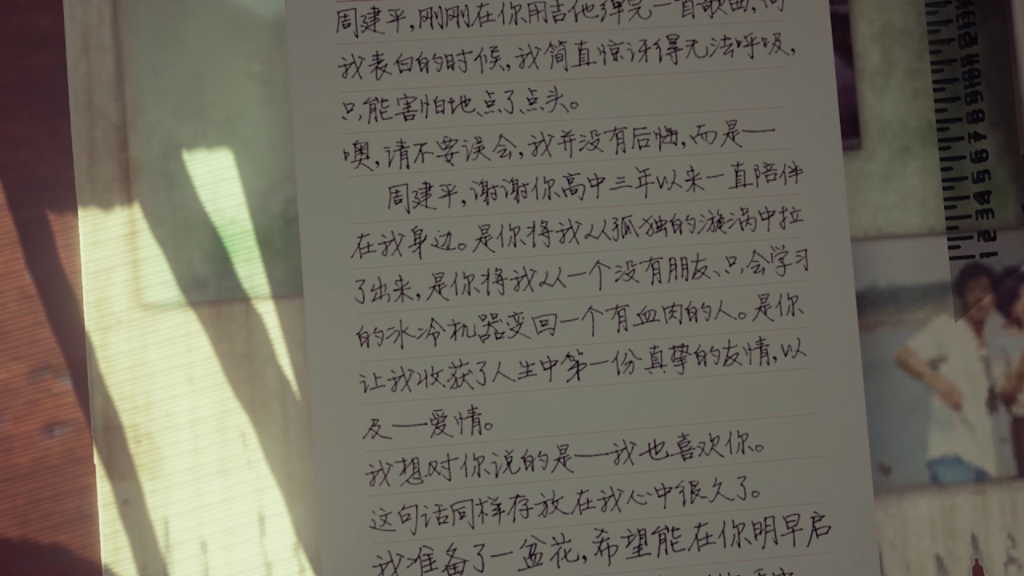 周建平,刚刚在你用吉他弹完一首歌曲,向
我表白的时候,我简直惊讶得无法呼吸,
只能害怕地点了点头。
噢,请不要误会,我并没有后悔,而是——
周建平,谢谢你高中三年以来一直陪伴
在我身边。是你将我从孤独的漩涡中拉
了出来,是你将我从一个没有朋友、只会学习
的冰冷机器变回一个有血肉的人。是你
让我收获了人生中第一份真挚的友情,以
及——爱情。
我想对你说的是——我也喜欢你。
这句话同样存放在我心中很久了。
我准备了一盆花,希望能在你明早启
1 2 3 4 5 6 7 8 9